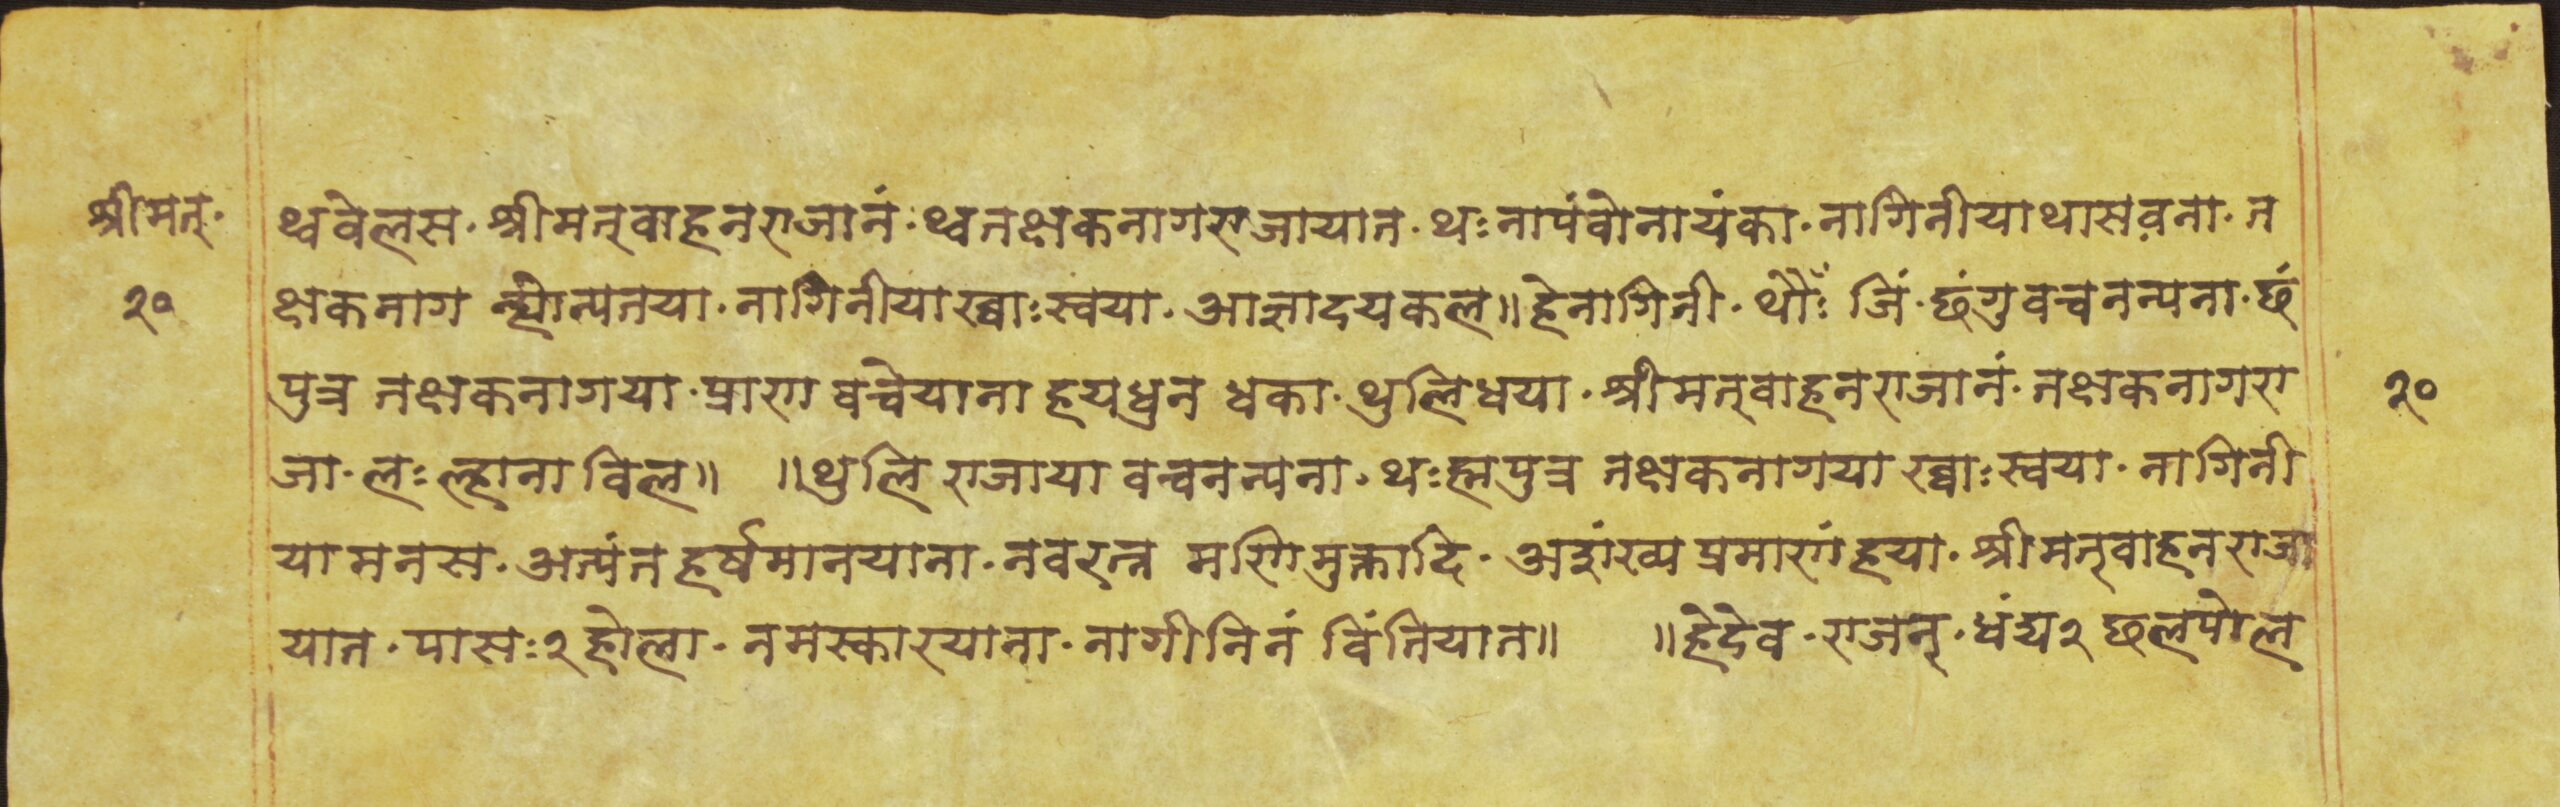 श्रीमत्· थ्ववेलस· श्रीमत्वाहनराजानं· थ्वतक्षकनागराजायात· थःनापंवोनायंका· नागिनीयाथासवना· त
२० क्षकनाग त्योत्यतया· नागिनीयाख्वाःस्वया· आज्ञादयकल॥हेनागिनी· थौँः जिं· छंगुवचनन्यना· छं
पुत्र तक्षकनागया· प्राण बचेयाना हयधुन धका· थुलिधया· श्रीमत्वाहनराजानं· तक्षकनागरा २०
जा· लःल्हाना विल॥ ॥थुलि राजाया वचनन्यना· थःह्मपुत्र तक्षकनागया ख्वाःस्वया· नागिनी
या मनस· अत्यंत हर्षमानयाना· नवरत्न मणिमुक्तादि· असंख्य प्रमाणं हया· श्रीमत्वाहनराजा
यात· पासः२ होला· नमस्कारयाना· नागीनिनं विंतियात॥ ॥हेदेव· राजन्· धंद्य२ छलपोल